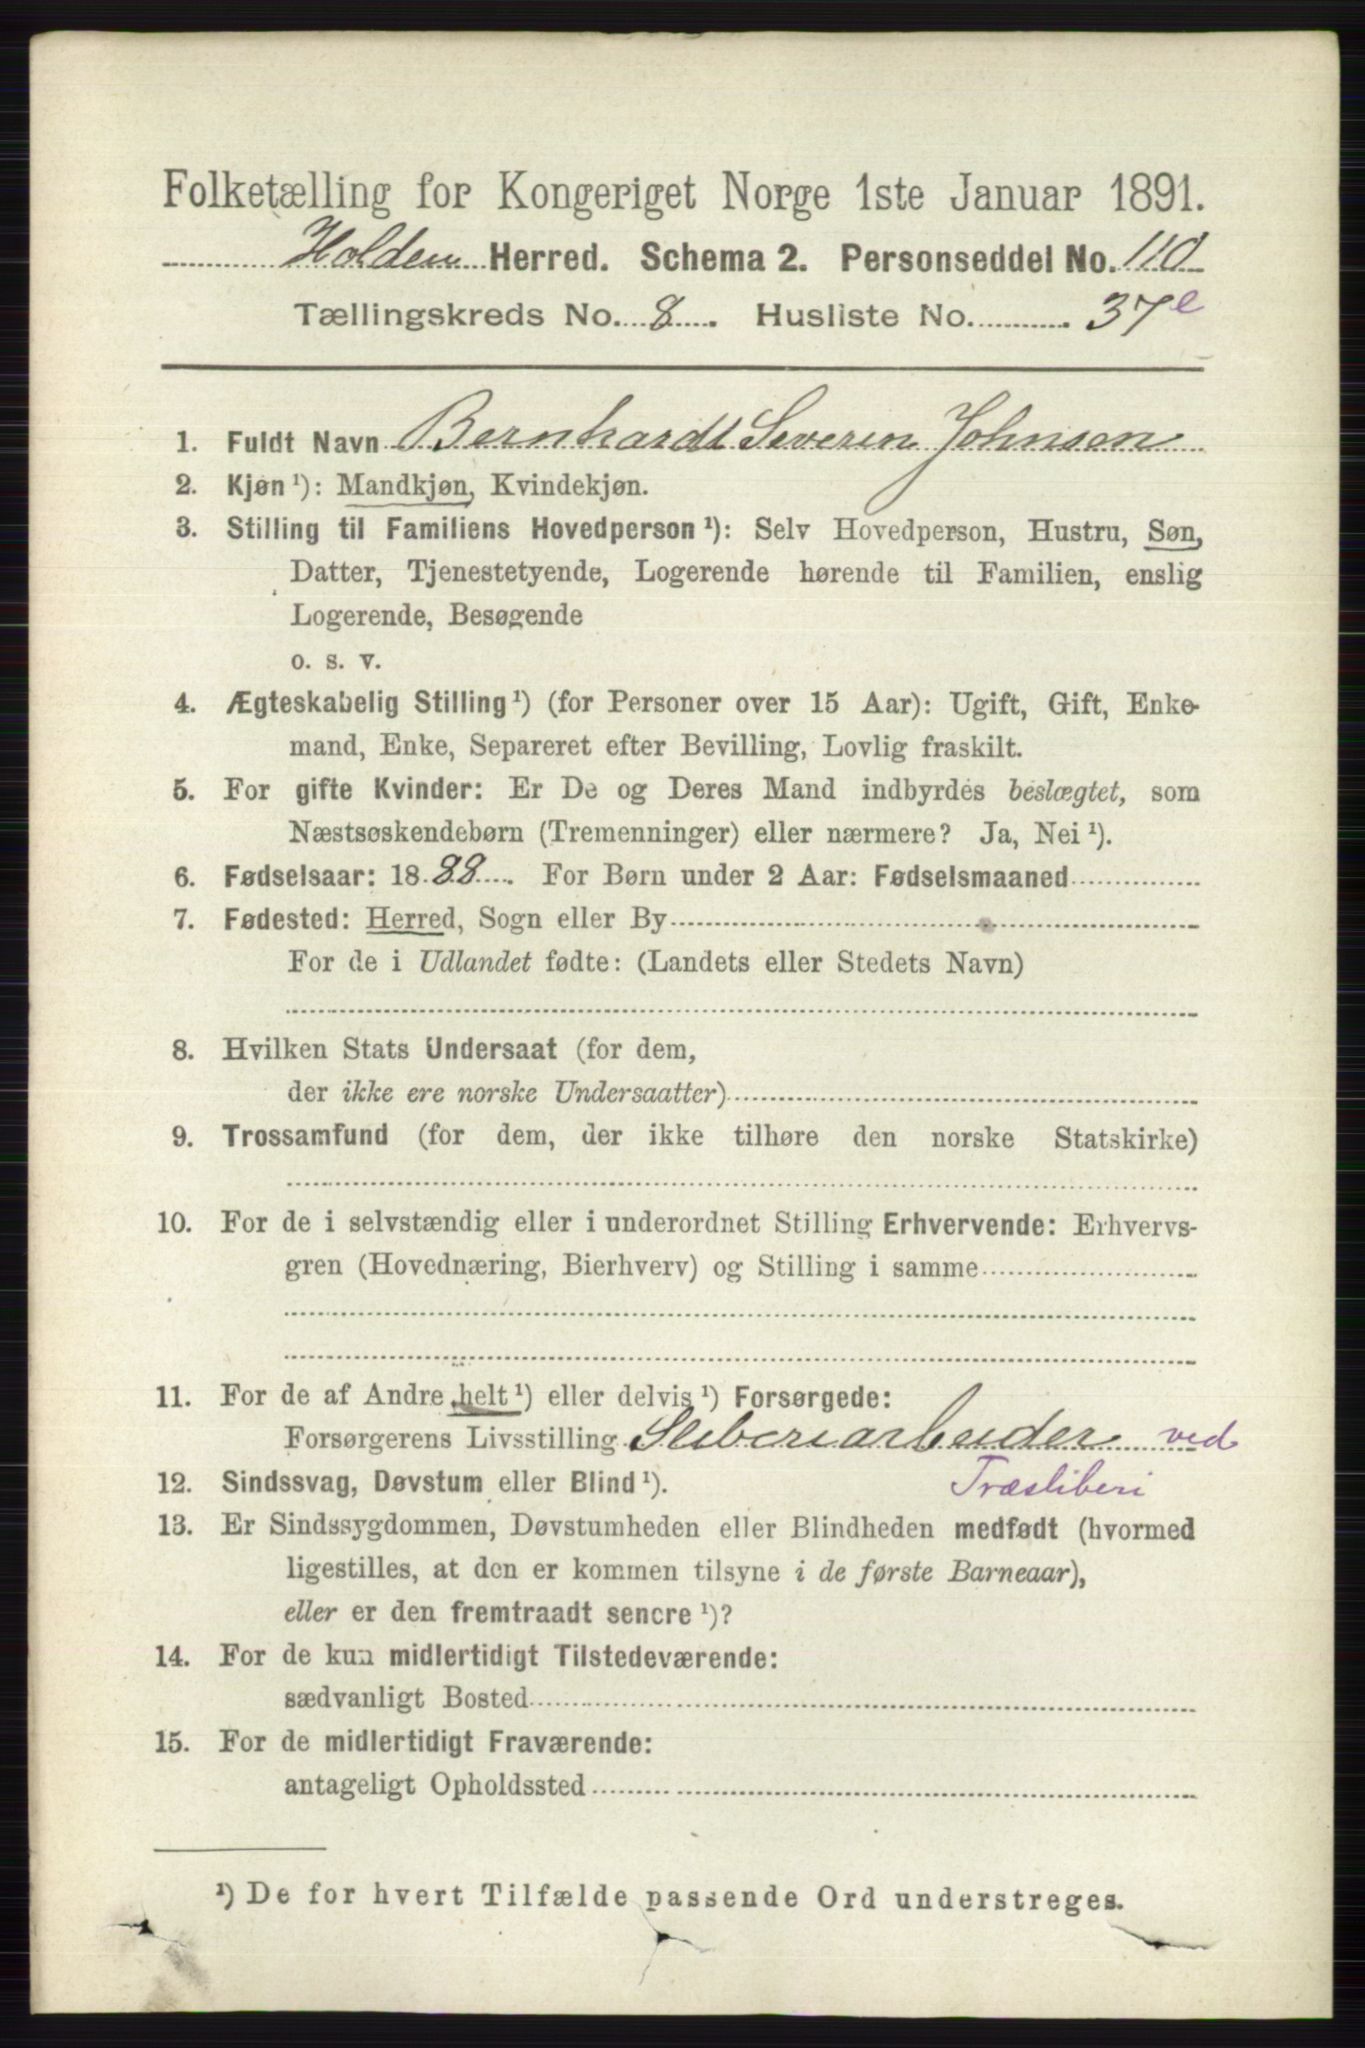 Folketælling for Kongeriget Norge 1ste Januar 1891.
Holden Herred. Schema 2. Personseddel No. 110
Tællingskreds No. 8. Husliste No. 37e
1. Fuldt Navn Bernhardt Severin Johnsen
2. Kjøn ¹): Mandkjøn, Kvindekjøn.
3. Stilling til Familiens Hovedperson ¹): Selv Hovedperson, Hustru, Søn,
Datter, Tjenestetyende, Logerende hørende til Familien, enslig
Logerende, Besøgende
o. s. v.
4. Ægteskabelig Stilling ¹) (for Personer over 15 Aar): Ugift, Gift, Enke-
mand, Enke, Separeret efter Bevilling, Lovlig fraskilt.
5. For gifte Kvinder: Er De og Deres Mand indbyrdes beslægtet, som
Næstsøskendebørn (Tremenninger) eller nærmere? Ja, Nei ¹).
6. Fødselsaar: 1888. For Børn under 2 Aar: Fødselsmaaned
7. Fødested: Herred, Sogn eller By
For de i Udlandet fødte: (Landets eller Stedets Navn)
8. Hvilken Stats Undersaat (for dem,
der ikke ere norske Undersaatter)
9. Trossamfund (for dem, der ikke tilhøre den norske Statskirke)
10. For de i selvstændig eller i underordnet Stilling Erhvervende: Erhvervs-
gren (Hovednæring, Bierhverv) og Stilling i samme
11. For de af Andre helt ¹) eller delvis ¹) Forsørgede:
Forsørgerens Livsstilling Sliberiarbeider ved
Træsliberi
12. Sindssvag, Døvstum eller Blind ¹).
13. Er Sindssygdommen, Døvstumheden eller Blindheden medfødt (hvormed
ligestilles, at den er kommen tilsyne i de første Barneaar),
eller er den fremtraadt senere ¹)?
14. For de kun midlertidigt Tilstedeværende:
sædvanligt Bosted
15. For de midlertidigt Fraværende:
antageligt Opholdssted
¹) De for hvert Tilfælde passende Ord understreges.